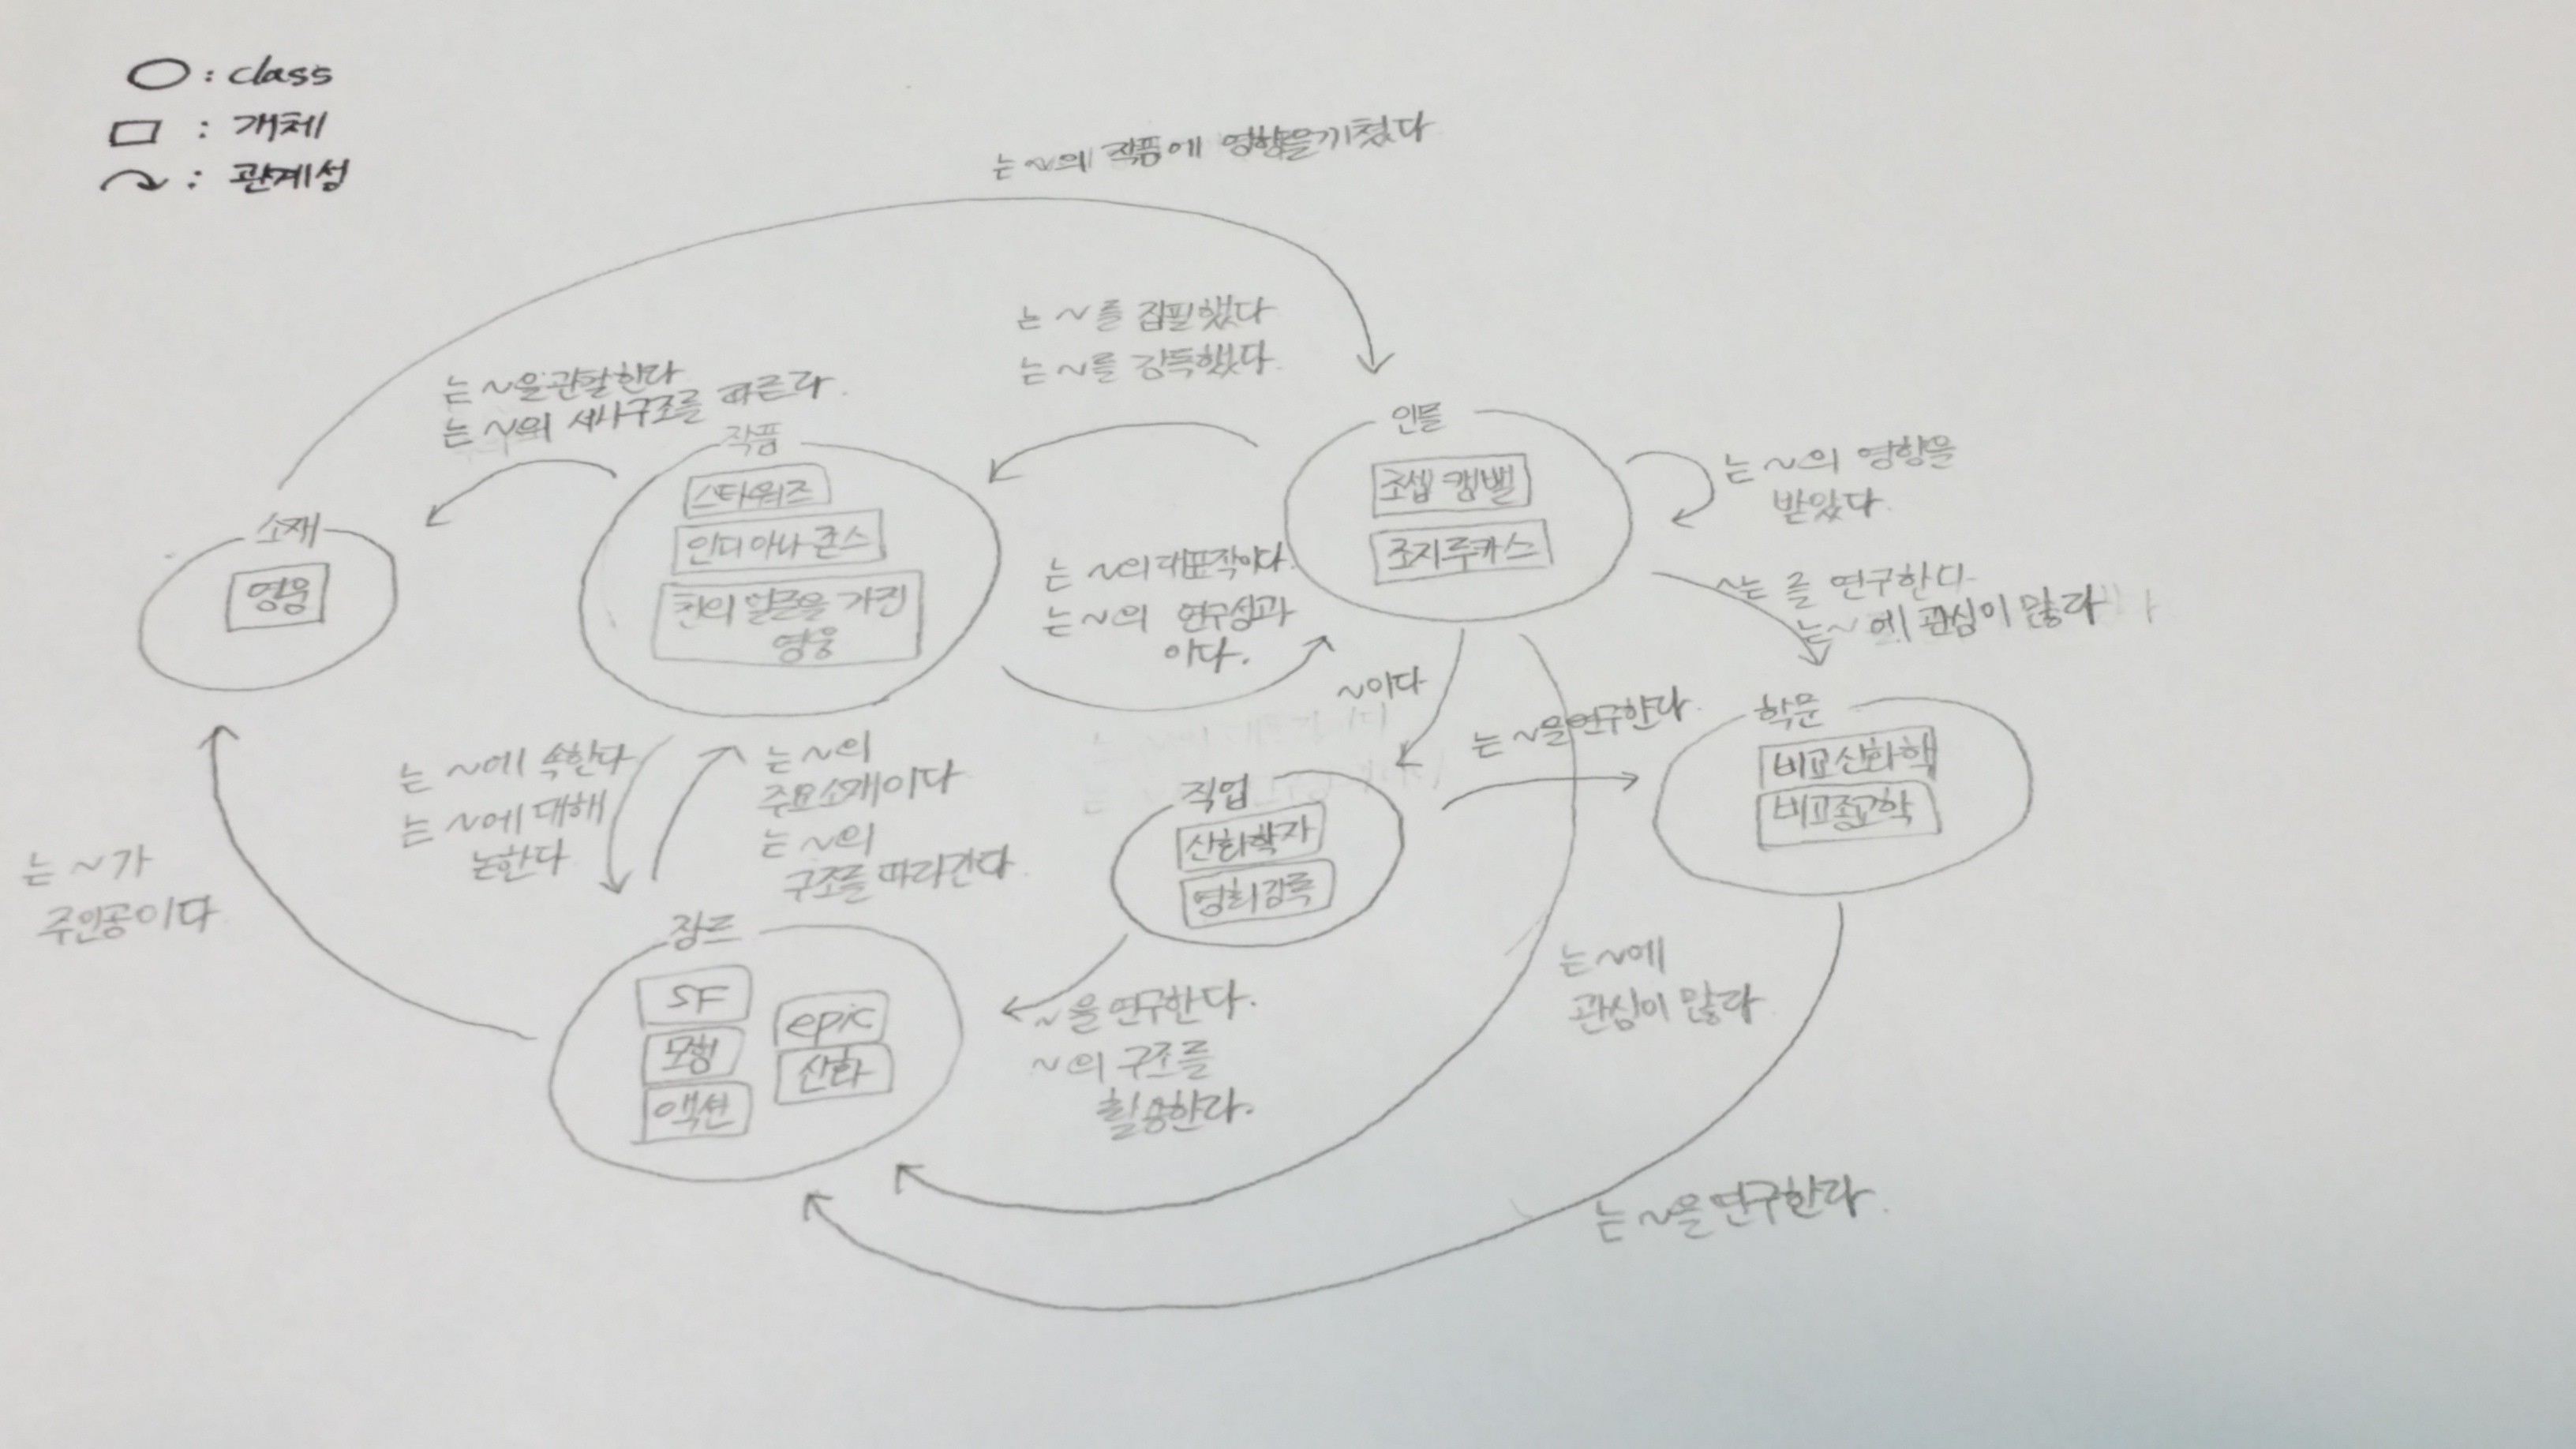 ○ : class
□ : 개체
↷ : 관계성
는 ~의 작품에 영향을 끼쳤다
는 ~를 집필했다
는 ~를 감독했다.
는 ~을 관찰한다
는 ~의 서사구조를 따른다.
작품
스타워즈
인디아나 존스
천의 얼굴을 가진
영웅
인물
조셉 캠밸
조지루카스
는 ~의 영향을
받았다.
소재
영웅
는 ~의 대표작이다.
는 ~의 연구성과
이다.
~는 를 연구한다
는 ~에 관심이 많다
~이다
는 ~을 연구한다.
학문
비교신화학
비교종교학
는 ~에 속한다
는 ~에 대해
논한다
는 ~의
주요소재이다
는 ~의
구조를 따라간다.
직업
신화학자
영화감독
는 ~가
주인공이다
장르
SF
모험
액션
epic
신화
~을 연구한다.
~의 구조를
활용한다.
는 ~에
관심이 많다
는 ~을 연구한다.